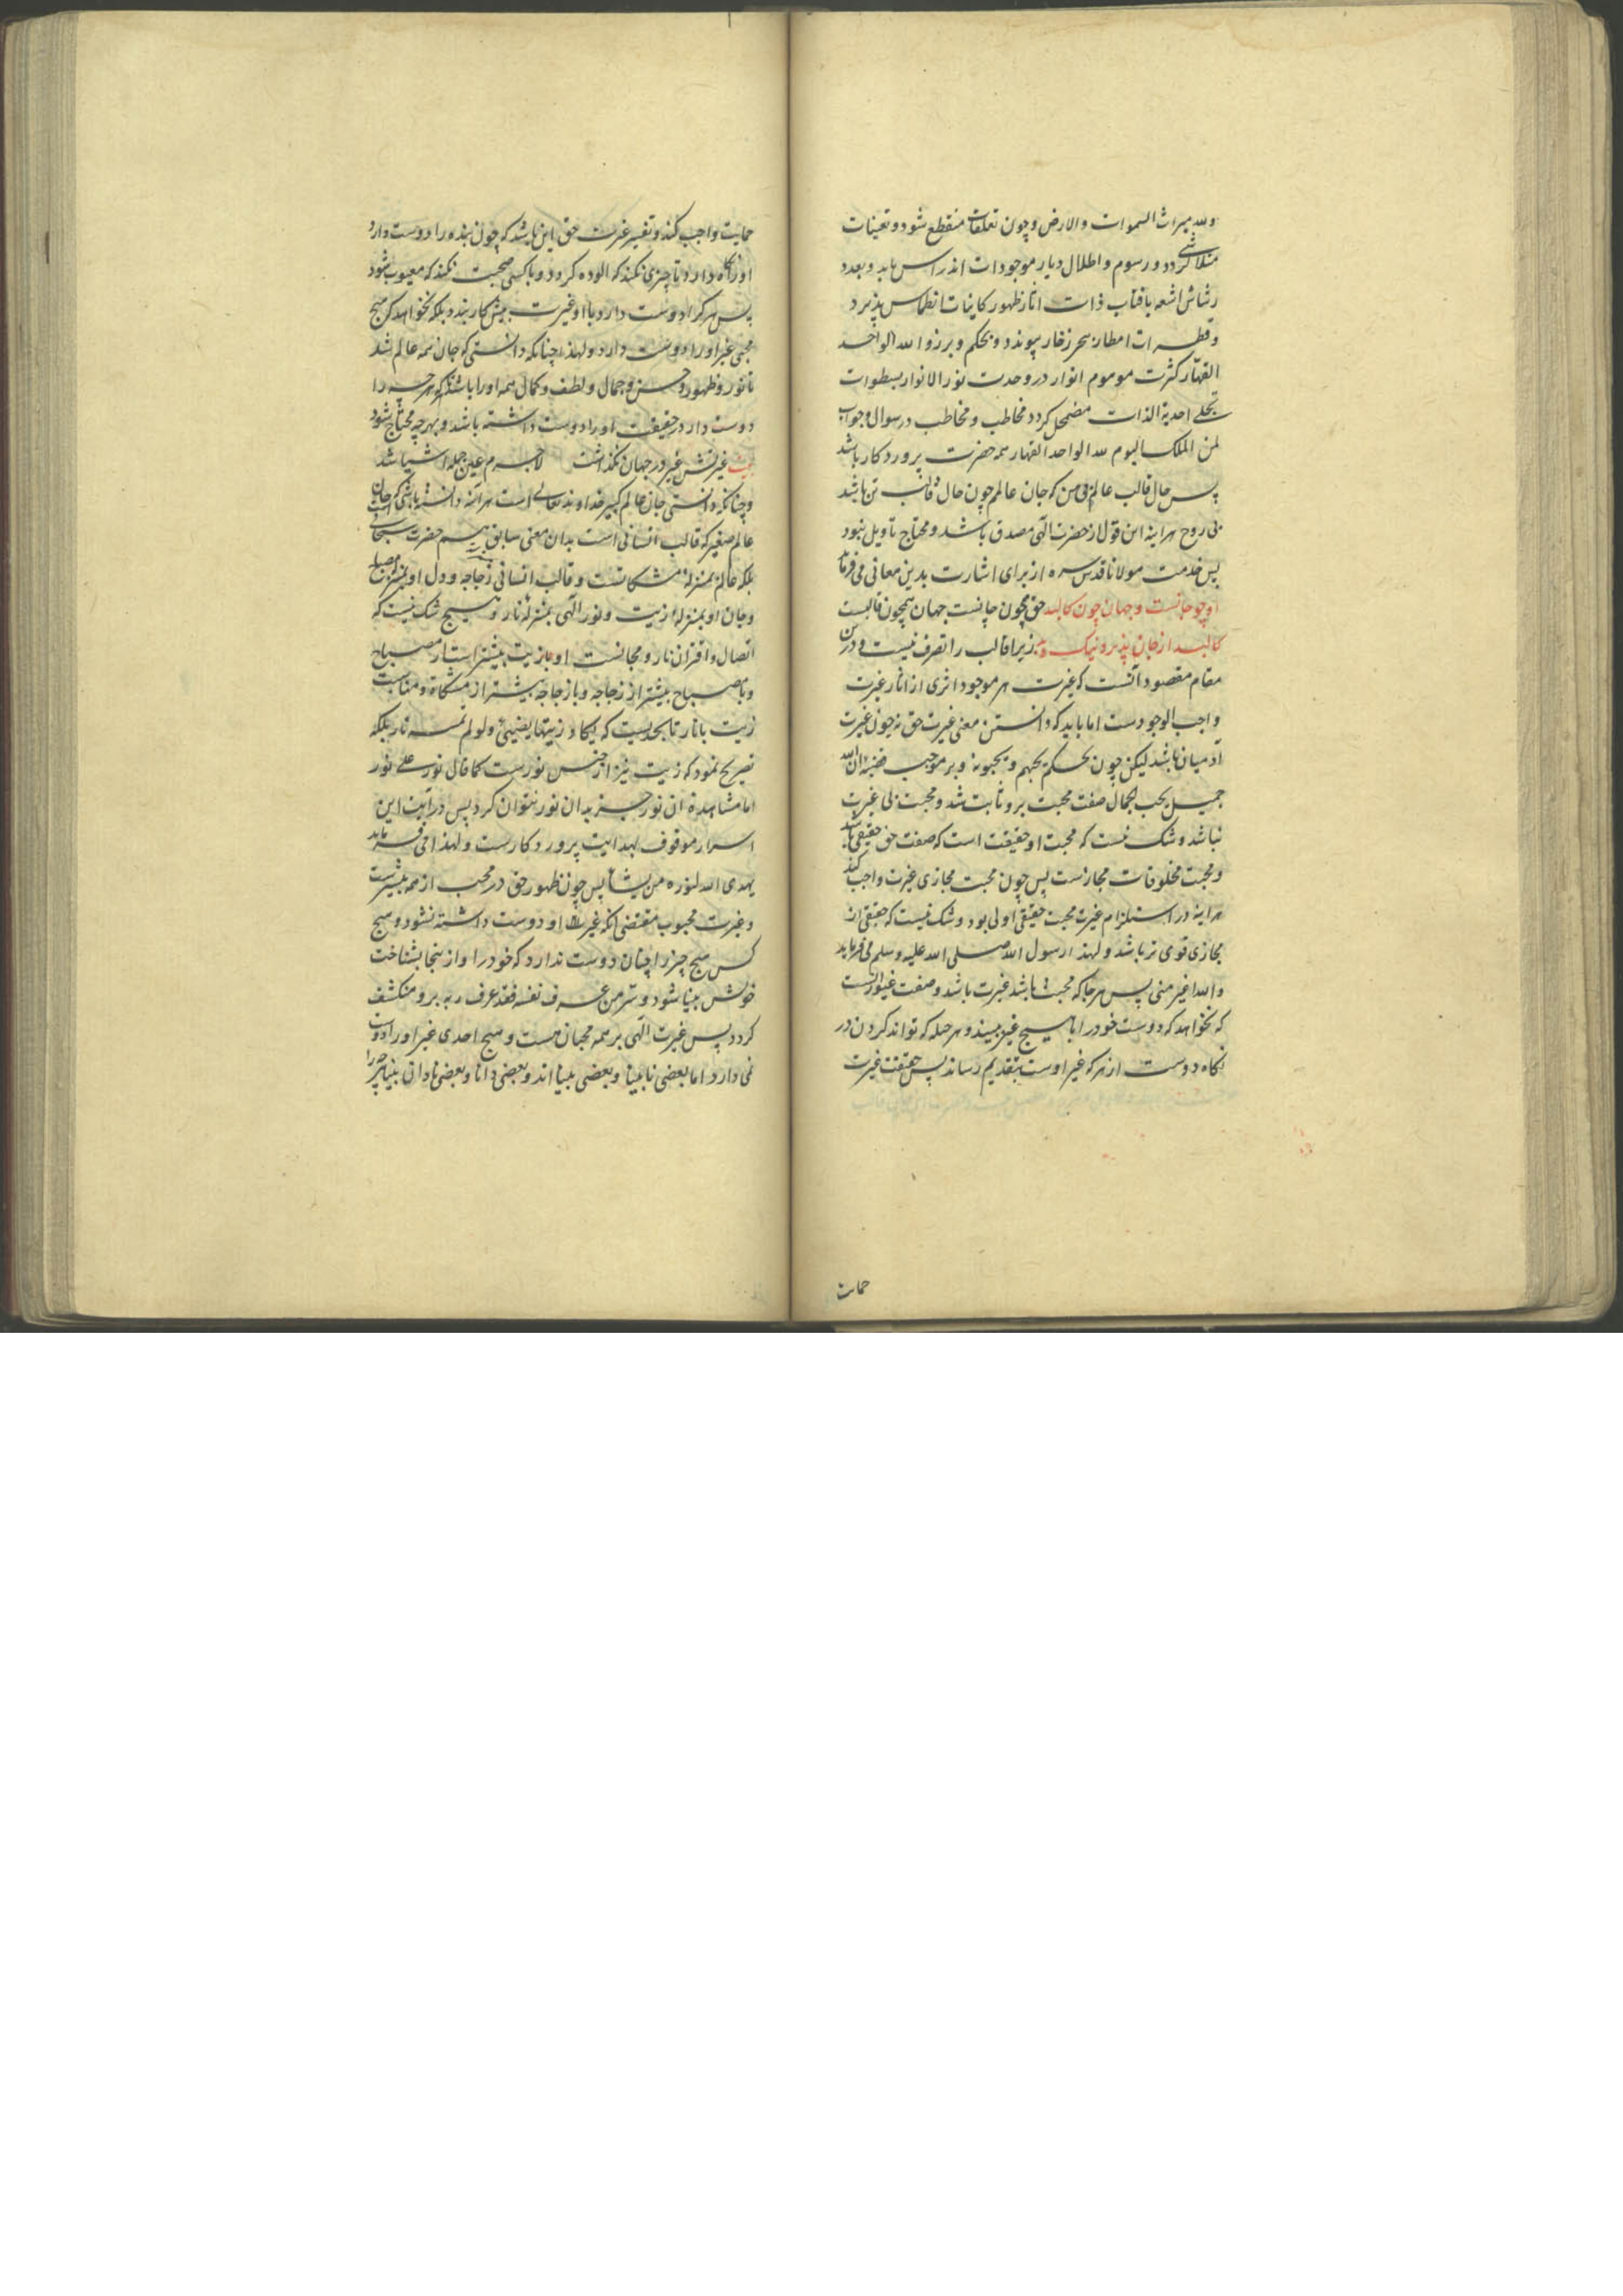 ولله میراث السموات والارض و چون تعلقات منقطع شود و تعینات
متلاشی گردد و رسوم و اطلال دیار موجودات اندراس یابد و بعدد
رشاش اشعه بافتاب ذات اثار ظهور کاینات انطماس پذیرد
و قطرات امطار ببحر زخار پیوندد و بحکم و برزوا لله الواحد
القهار کثرت موهوم انوار در وحدت نور الانوار بسطوات
تجلی احدیة الذات مضمحل کردد مخاطب و مخاطب در سوال و جواب
لمن الملک الیوم لله الواحد القهار همه حضرت پروردکار باشد
پس حال قالب عالم بی من که جان عالمم چون حال قالب تن باشد
بی روح هراینه این قول از حضرت الهی مصدق باشد و محتاج تاویل نبود
پس خدمت مولانا قدس سره از برای اشارت بدین معانی می فرماید
او چو جانست و جهان چون کالبد حق چون جانست جهان همچون قالبست
کالبد از جان پذیرد نیک و بد زیرا قالب را تصرف نیست و درین
مقام مقصود آنست که غیرت هر موجود اثری از اثار غیرت
واجب الوجودست اما باید که دانستن معنی غیرت حق نه چون غیرت
آدمیان باشد لیکن چون بحکم یحبهم و یحبونه و بر موجب ان الله
جمیل یحب الجمال صفت محبت برو ثابت شد و محبت بی غیرت
نباشد و شک نیست که محبت او حقیقت است که صفت حق حقیقی باشد
و محبت مخلوقات مجازست پس چون محبت مجازی غیرت واجب کند
هراینه در استلزام غیرت محبت حقیقی اولی بود و شک نیست که حقیقی از
مجازی قوی تر باشد و لهذا رسول الله صلی الله علیه وسلم می فرماید
والله اغیر منی پس هر جا که محبت باشد غیرت باشد و صفت غیور آنست
که نخواهد که دوست خود را با هیچ غیر بیند و هر حیله که تواند کردن در
نگاه دوست از هر که غیر اوست بتقدیم رساند پس حقیقت غیرت
حمایت
حمایت واجب کند و تفسیر غیرت حق این باشد که چون بنده را دوست دارد
او را نگاه دارد تا چیزی نکند که الوده کردد و با کسی صحبت نکند که معیوب شود
پس هر کرا دوست دارد با او غیرت بیش کار بندد بلکه نخواهد که هیچ
محبی غیر او را دوست دارد و لهذا چنانکه دانستی که جان همه عالم شد
تا نور و ظهور و حسن و جمال و لطف و کمال همه او را باشد تا که هر چه را
دوست دارد در حقیقت او را دوست داشته باشد و بهر چه محتاج شود
بیت غیرتش غیر در جهان نگذاشت لاجرم عین جمله اشیا شد
و چنانکه دانستی جان عالم کبیر خداوند تعالی است هراینه دانسته باشی که جان
عالم صغیر که قالب انسانی است بدان معنی سابق هم حضرت سبحانی است
بلکه عالم بمنزله مشکاتست و قالب انسانی زجاجه و دل او بمنزله مصباح
و جان او بمنزله زیت و نور الهی بمنزله نار و هیچ شک نیست که
اتصال و اقتران نار و مجانست او با زیت بیشتر است از مصباح
و با مصباح بیشتر از زجاجه و با زجاجه بیشتر از مشکاة و مناسبت
زیت با نار تا بحدیست که یکاد زیتها یضیئ ولو لم تمسسه نار بلکه
تصریح نمود که زیت نیز از جنس نورست کما قال نور علی نور
اما مشاهده ان نور جز بدان نور نتوان کرد پس درایت این
اسرار موقوف بهدایت پروردکارست و لهذا می فرماید
یهدی الله لنوره من یشا پس چون ظهور حق در محب از همه بیشترست
و غیرت محبوب مقتضی انکه غیر او دوست داشته نشود و هیچ
کس هیچ چیز را چنان دوست ندارد که خود را و از ینجا بشناخت
خویش بینا شود و سر من عرف نفسه فقد عرف ربه برو منکشف
کردد پس غیرت الهی بر همه محبان هست و هیچ احدی غیر او را دوست
نمی دارد اما بعضی نابینا و بعضی بینا اند و بعضی دانا و بعضی نادان بینا هر چه را